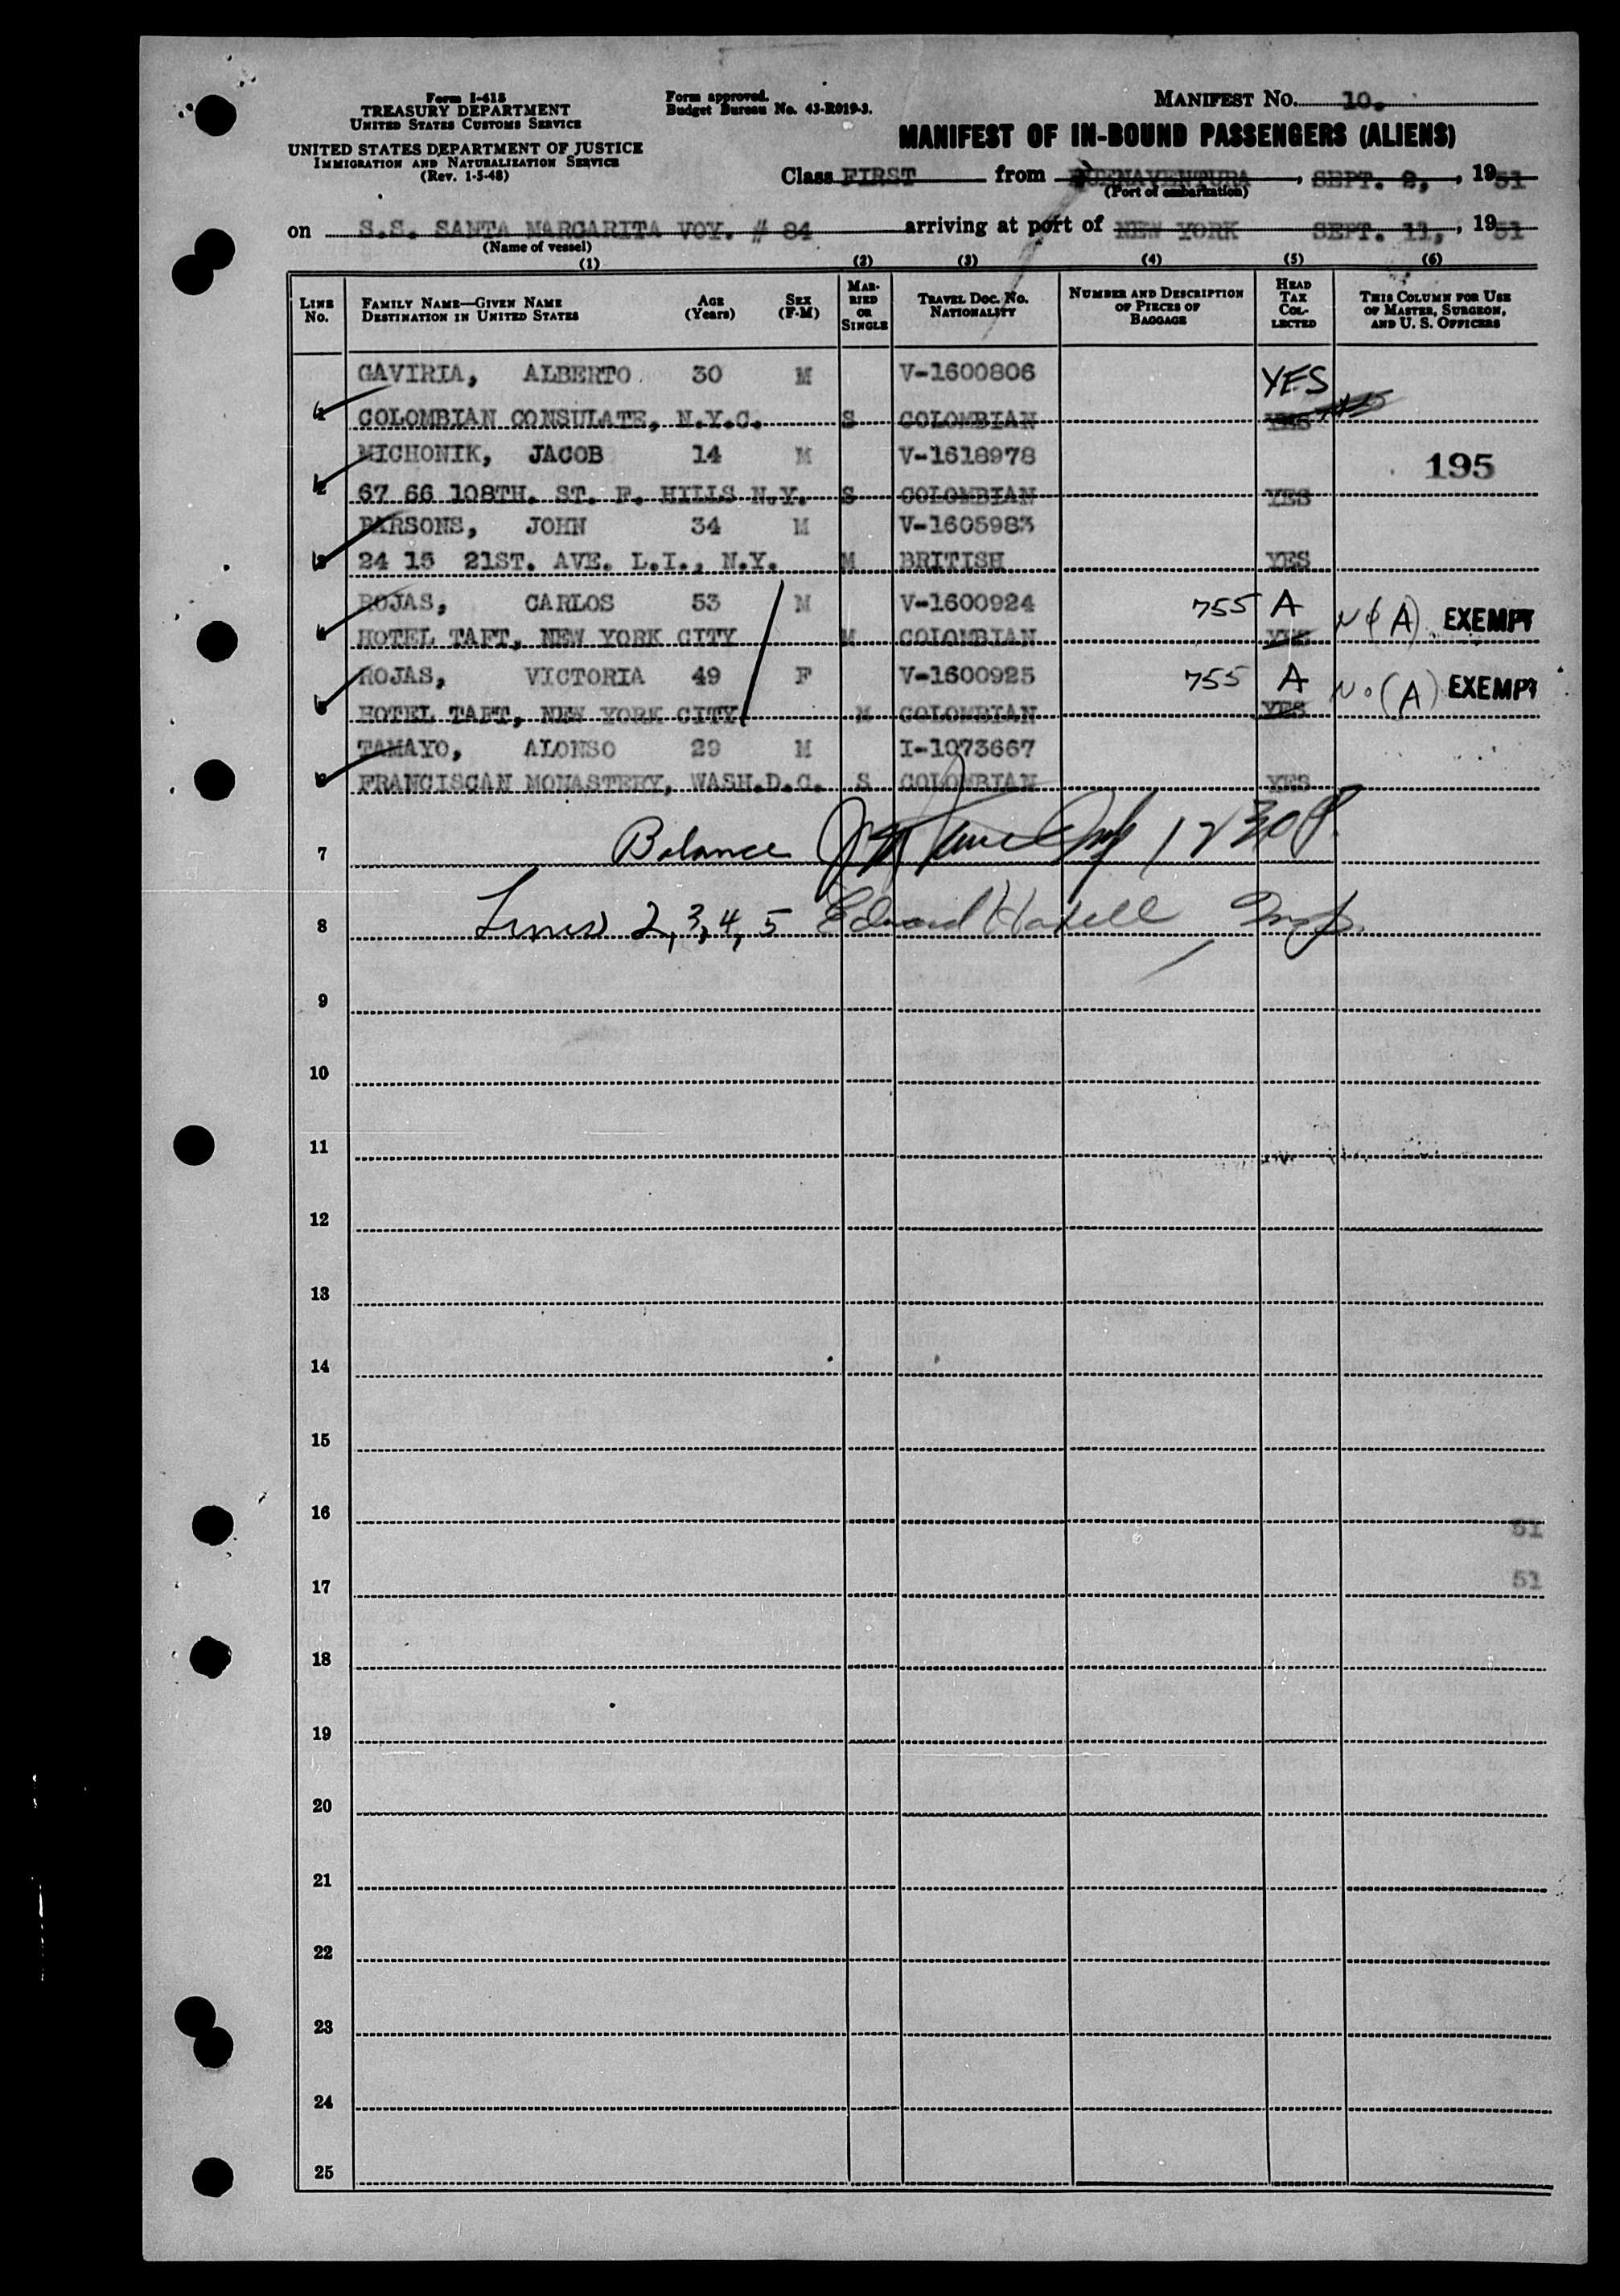 Form I-418
TREASURY DEPARTMENT
UNITED STATES CUSTOMS SERVICE
UNITED STATES DEPARTMENT OF JUSTICE
IMMIGRATION AND NATURALIZATION SERVICE
(Rev. 1-5-48)
Form approved.
Budget Bureau No. 43-R019-3.
MANIFEST NO. 10.
MANIFEST OF IN-BOUND PASSENGERS (ALIENS)
Class FIRST from BUENAVENTURA, SEPT. 2, 1951
(Port of embarkation)
on S.S. SANTA MARGARITA VOY. # 84 arriving at port of NEW YORK SEPT. 11, 1951
(Name of vessel)
(1) (2) (3) (4) (5) (6)
LINE NO. FAMILY NAME—GIVEN NAME DESTINATION IN UNITED STATES AGE (Years) SEX (F-M) MARRIED OR SINGLE TRAVEL DOC. NO. NATIONALITY NUMBER AND DESCRIPTION OF PIECES OF BAGGAGE HEAD TAX COLLECTED THIS COLUMN FOR USE OF MASTER, SURGEON, AND U. S. OFFICERS
GAVIRIA, ALBERTO 30 M V-1600806 YES
1 COLOMBIAN CONSULATE, N.Y.C. S COLOMBIAN YES
MICHONIK, JACOB 14 M V-1618978 195
2 67 66 108TH. ST. F. HILLS N.Y. S COLOMBIAN YES
PARSONS, JOHN 34 M V-1605983
3 24 15 21ST. AVE. L.I., N.Y. M BRITISH YES
ROJAS, CARLOS 53 M V-1600924 755 A (A) EXEMPT
4 HOTEL TAFT, NEW YORK CITY M COLOMBIAN YES
ROJAS, VICTORIA 49 F V-1600925 755 A No (A) EXEMPT
5 HOTEL TAFT, NEW YORK CITY M COLOMBIAN YES
TAMAYO, ALONSO 29 M I-1073667
6 FRANCISCAN MONASTERY, WASH.D.C. S COLOMBIAN YES
7 Balance 1230P.
8 Lines 2, 3, 4, 5 Edward Insp.
9
10
11
12
13
14
15
16 51
17 51
18
19
20
21
22
23
24
25